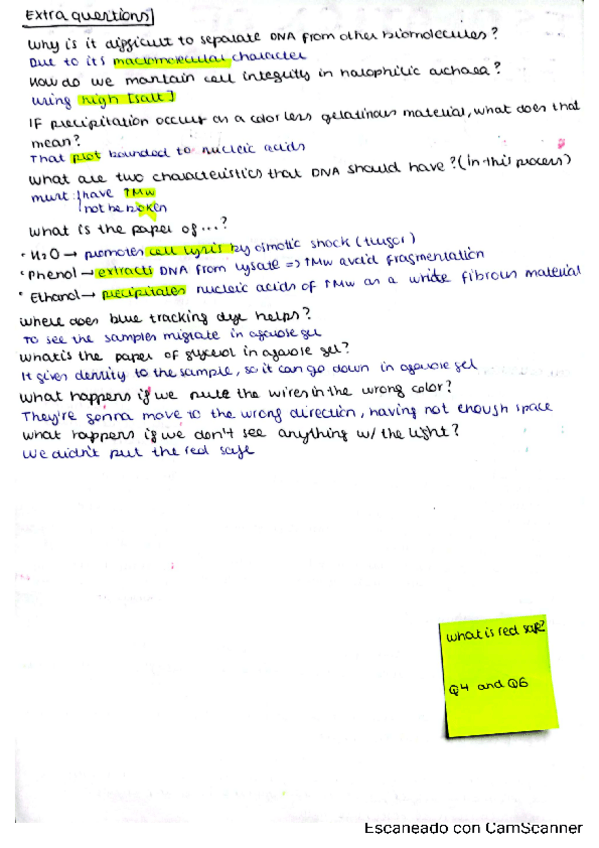 Extra questions
Why is it difficult to separate DNA from other biomolecules?
Due to its macromolecular character
How do we mantain cell integrity in halophilic archaea?
Using high [salt]
If precipitation occurs as a colorless gelatinous material, what does that
mean?
That prot bounded to nucleic acids
What are two characteristics that DNA should have? (in this process)
must have ↑MW
not be broken
What is the paper of...?
• H2O → promotes cell lysis by osmotic shock (turgor)
• Phenol → extracts DNA from lysate => ↑MW avoid fragmentation
• Ethanol → precipitates nucleic acids of ↑MW as a white fibrous material
Where does blue tracking dye helps?
To see the samples migrate in agarose gel
What is the paper of glycerol in agarose gel?
It gives density to the sample, so it can go down in agarose gel
What happens if we put the wires in the wrong color?
They're gonna move to the wrong direction, having not enough space
What happens if we don't see anything w/ the light?
We didn't put the red safe
What is red safe?
Q4 and Q6
Escaneado con CamScanner